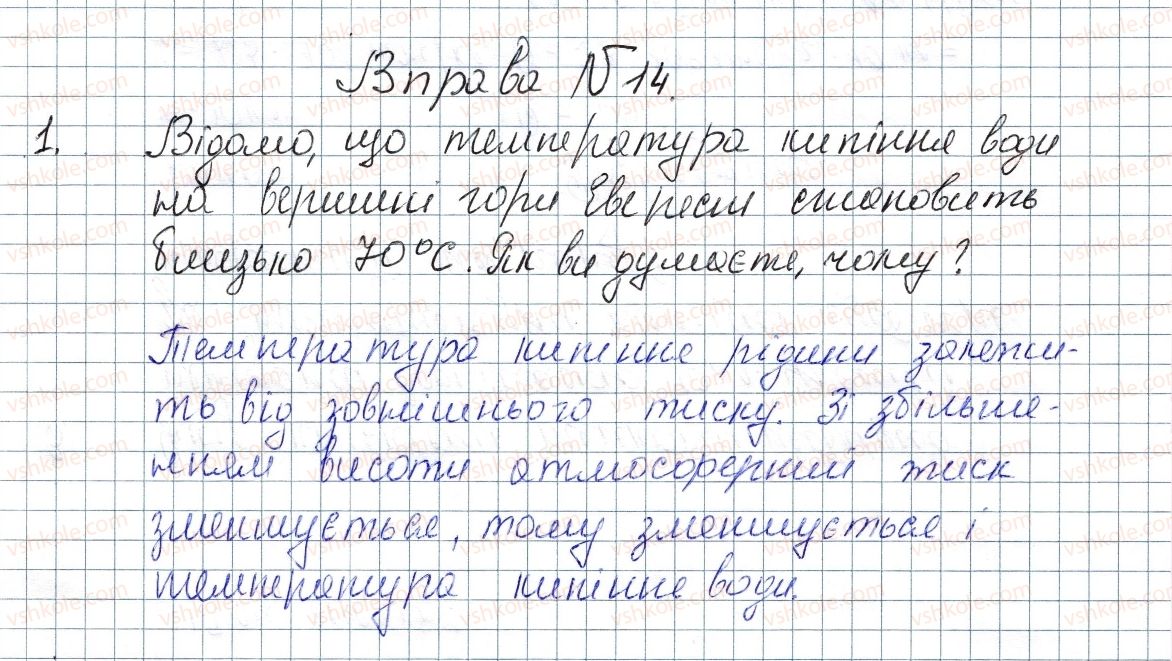 Вправа №14.
1. Відомо, що температура кипіння води
на вершині гори Еверест становить
близько 70°С. Як ви думаєте, чому?
Температура кипіння рідини залежи-
ть від зовнішнього тиску. Зі збільше-
нням висоти атмосферний тиск
зменшується, тому зменшується і
температура кипіння води.